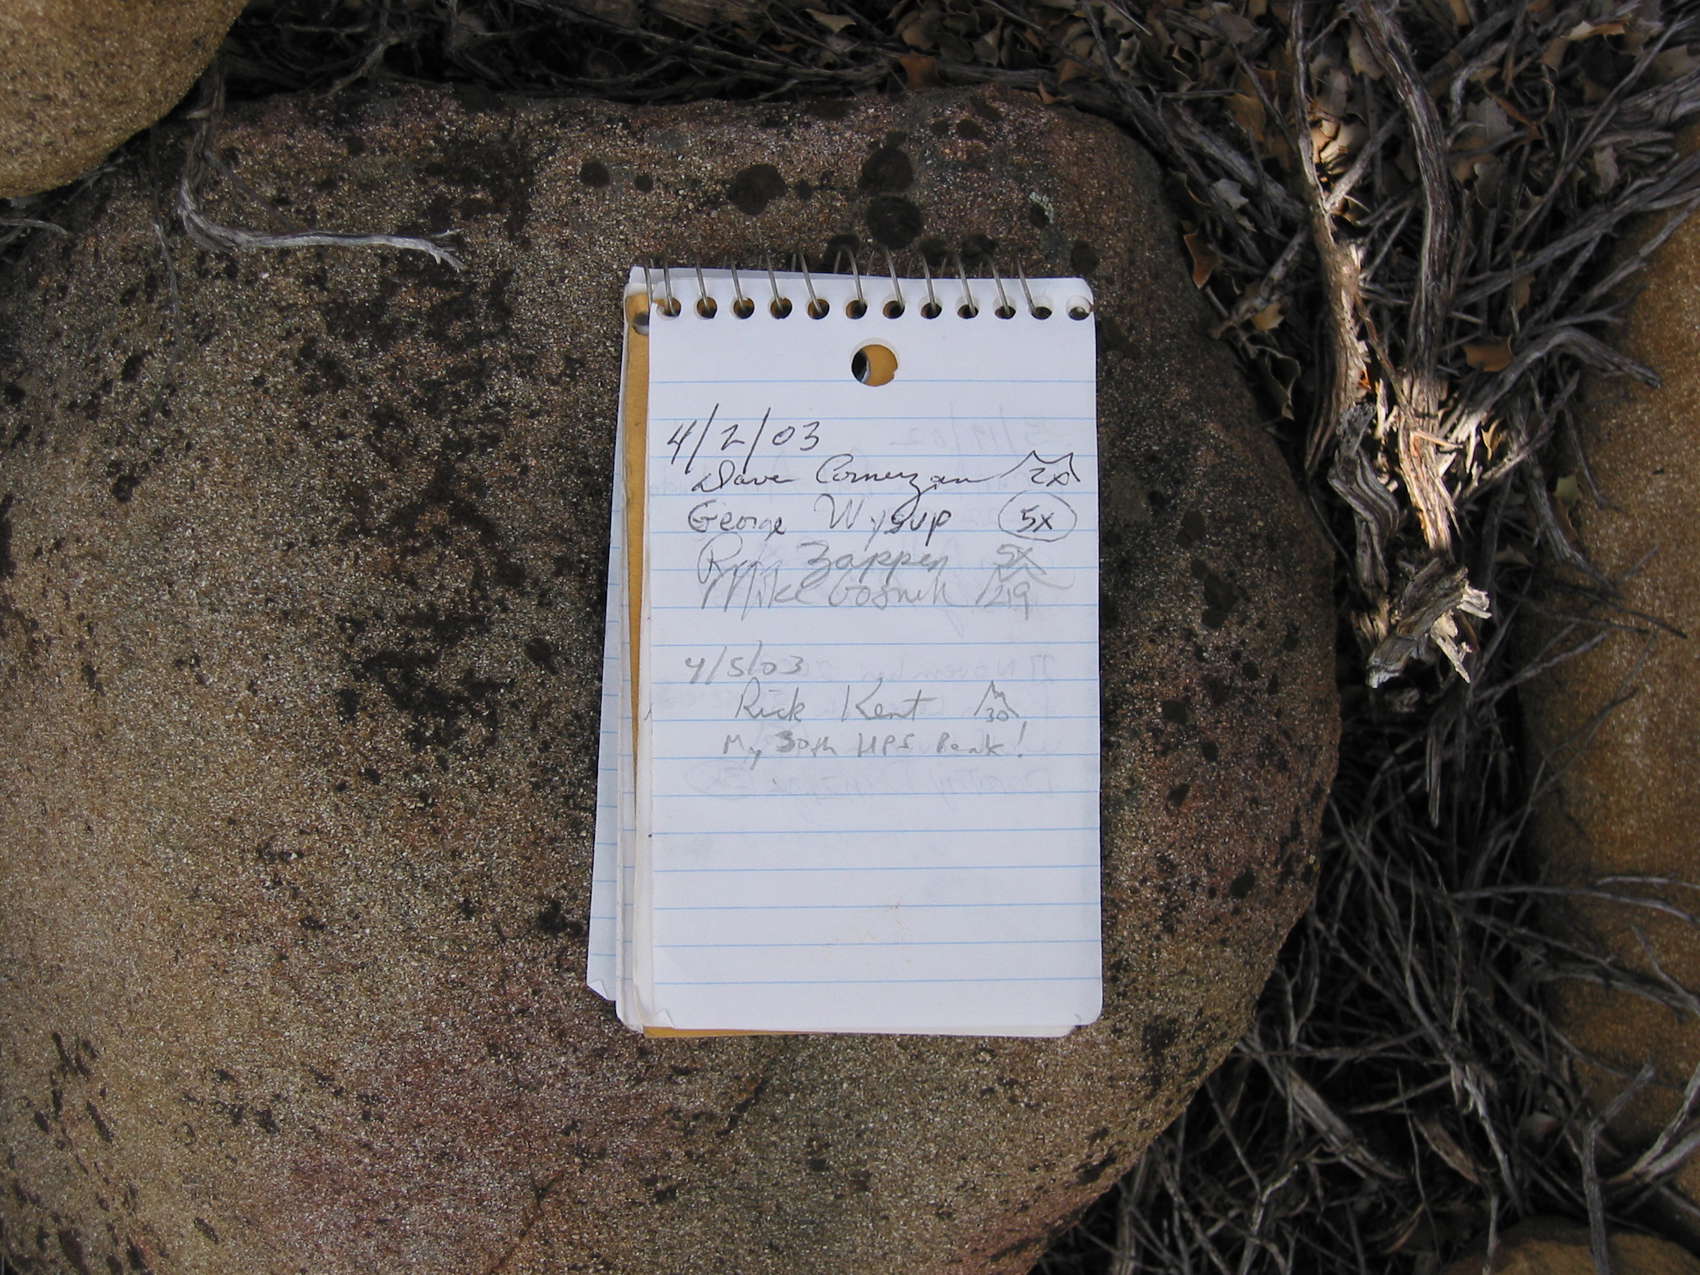 4/2/03
Dave 2x
George Wysup 5x
Zappen 5x
Mike 219
4/5/03
Rick Kent 30
My 30th HPS Peak!